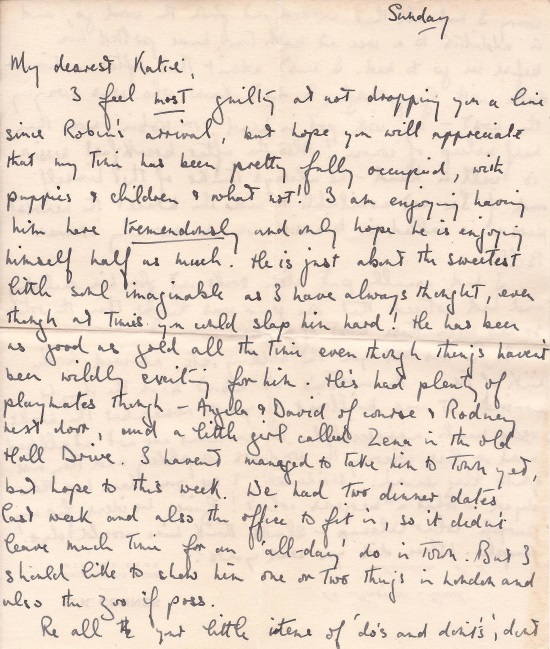 Sunday
My dearest Katie,
I feel most guilty at not dropping you a line
since Robin's arrival, but hope you will appreciate
that my time has been pretty fully occupied, with
puppies & children & what not! I am enjoying having
him here tremendously and only hope he is enjoying
himself half as much. He is just about the sweetest
little soul imaginable as I have always thought, even
though at times you could slap him hard! He has been
as good as gold all the time even though things haven't
been wildly exciting for him. He's had plenty of
playmates though – Angela & David of course & Rodney
next door, and a little girl called Zena in the old
Hall Drive. I haven't managed to take him to Town yet,
but hope to this week. We had two dinner dates
last week and also the office to fit in, so it didn't
leave much time for an 'all-day' do in Town. But I
should like to show him one or two things in London and
also the Zoo if poss.
Re all the your little items of 'do's and dont's', dont